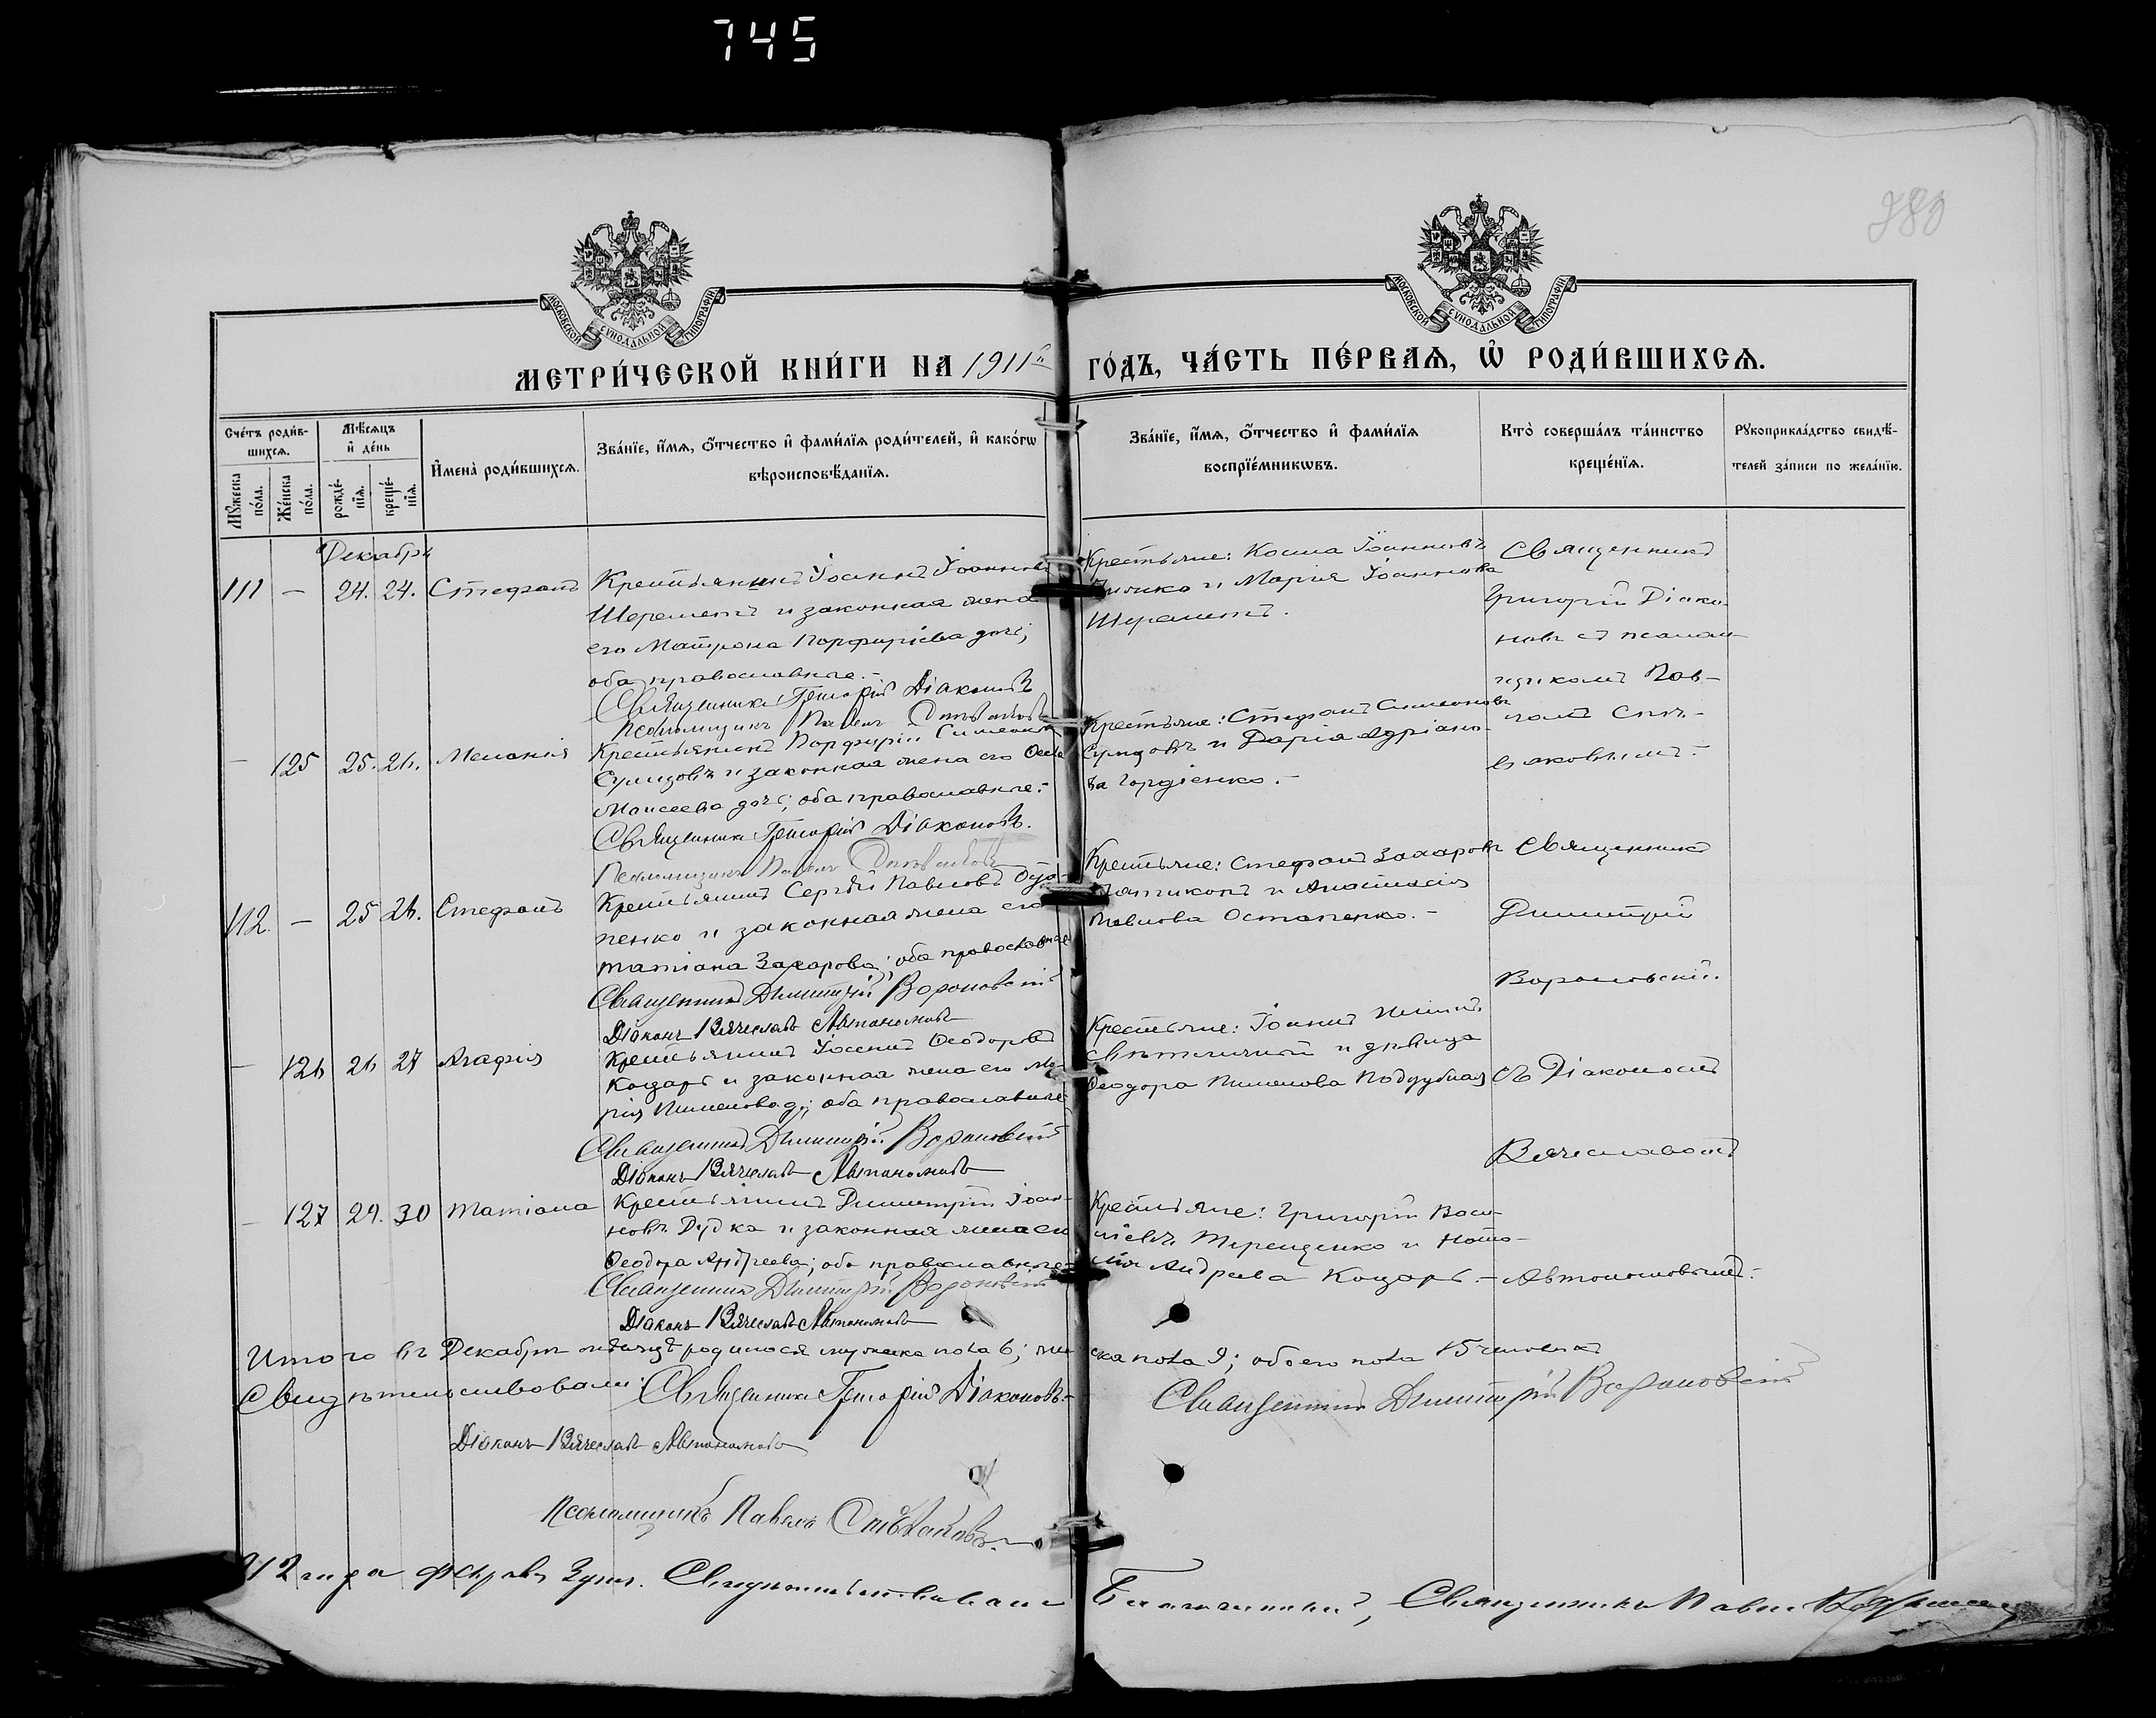 745
380
МОСКОВСКОЙ СѴНОДАЛЬНОЙ ТИПОГРАФІИ
МОСКОВСКОЙ СѴНОДАЛЬНОЙ ТИПОГРАФІИ
МЕТРИ́ЧЕСКОЙ КНИ́ГИ НА 1911й ГО́ДЪ, ЧА́СТЬ ПЕ́РВАЯ, Ѽ РОДИ́ВШИХСЯ.
Сче́тъ роди́в-
шихся.
Мꙋ́жеска по́ла.
Же́нска по́ла.
Мѣ́сяцъ
и҆ де́нь
рожде́-
нїя.
креще́-
нїя.
И҆мена̀ роди́вшихся.
Зва́нїе, и҆́мя, ѻ҆́тчество и҆ фами́лїя роди́телей, и҆ како́гѡ
вѣроисповѣ́данїя.
Зва́нїе, и҆́мя, ѻ҆́тчество и҆ фами́лїя
воспрїе́мникѡвъ.
Кто̀ соверша́лъ та́инство
креще́нїя.
Рꙋкоприкла́дство свидѣ́-
телей за́писи по жела́нїю.
Декабрь
111 — 24. 24. Стефанъ
Крестьянинъ Іоаннъ Іоанновъ
Шереметъ и законная жена
его Матрона Порфиріева дочь;
оба православные.-
Священникъ Григорій Діаконовъ
Псаломщикъ Павелъ
Крестьяне: Косма Іоанновъ
и Марія Іоаннова
Шереметъ.
Священникъ
Григорій Діако-
новъ съ псалом-
щикомъ Пав-
ломъ
— 125 25. 26. Меланія
Крестьянинъ Порфирій Симеоновъ
Сулидовъ и законная жена его
Моисеева дочь; оба православные.-
Священникъ Григорій Діаконовъ.
Псаломщикъ Павелъ
Крестьяне: Стефанъ Симеоновъ
Сулидовъ и Дарія Адріано-
ва Гордіенко.-
112. — 25 26. Стефанъ
Крестьянинъ Сергѣй Павловъ
пенко и законная жена его
Татіана Захарова; оба православные
Священникъ Димитрій Вороновскій
Діаконъ Вячеславъ Автономовъ
Крестьяне: Стефанъ Захаровъ
и Анастасія
Павлова Остапенко.-
Священникъ
Димитрій
Вороновскій.
— 126 26 27 Агафія
Крестьянинъ Іосифъ Ѳеодоровъ
Коцарь и законная жена его Ма-
рія Пименова д.; оба православные
Священникъ Димитрій Вороновскій
Діаконъ Вячеславъ Автономовъ
Крестьяне: Іоаннъ
и дѣвица
Ѳеодора Пименова Поддубная
съ Діакономъ
Вячеславомъ
— 127 29. 30 Татіана
Крестьянинъ Димитрій Іоан-
новъ Дудка и законная жена его
Ѳеодора Андреева; оба православные
Священникъ Димитрій Вороновскій
Діаконъ Вячеславъ Автономовъ
Крестьяне: Григорій Васи-
ліевъ Терещенко и Ната-
лія Андреева Коцарь.-
Автономовымъ.-
Итого въ Декабрѣ мѣсяцѣ родилося мужеска пола 6; женска пола 9; обоего пола 15 человѣкъ
Свидѣтельствовали: Священникъ Григорій Діаконовъ.- Священникъ Димитрій Вороновскій
Діаконъ Вячеславъ Автономовъ
Псаломщикъ Павелъ
12 года Февраля 3 дня. Свидѣтельствовалъ Благочинный, Священникъ Павелъ